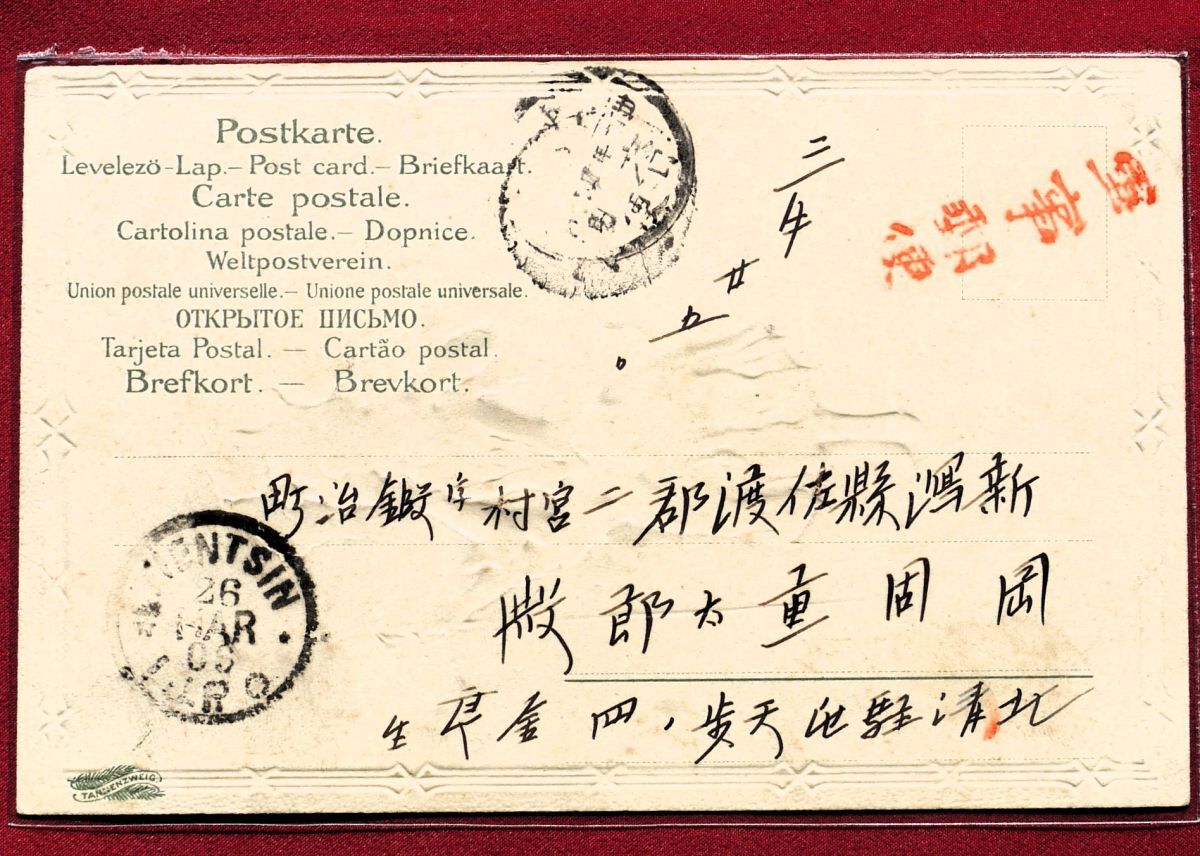 Postkarte.
Levelezö-Lap.– Post card.– Briefkaart.
Carte postale.
Cartolina postale.– Dopnice.
Weltpostverein.
Union postale universelle.– Unione postale universale.
ОТКРЫТОЕ ПИСЬМО.
Tarjeta Postal. — Cartão postal.
Brefkort. — Brevkort.
軍事郵便
三
廿
新潟縣佐渡郡二宮村字鍛冶町
岡固重太郎
北清駐屯天歩、四
生
TIENTSIN
26
MAR
I.J.P.O
TANNENZWEIG